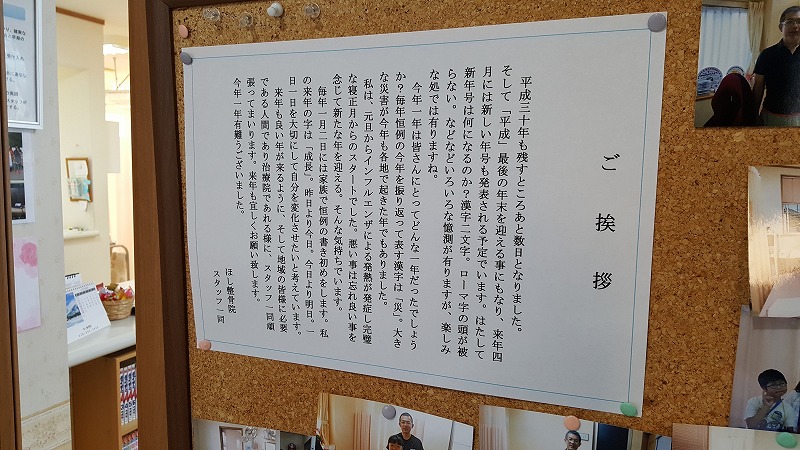 ご挨拶
平成三十年も残すところあと数日となりました。
そして「平成」最後の年末を迎える事にもなり、来年四
月には新しい年号も発表される予定でいます。はたして
新年号は何になるのか？漢字二文字。ローマ字の頭が被
らない。などなどいろいろな憶測が有りますが、楽しみ
な処では有りますね。
今年一年は皆さんにとってどんな一年だったでしょう
か？毎年恒例の今年を振り返って表す漢字は「災」。大き
な災害が今年も各地で起きた年でもありました。
私は、元旦からインフルエンザによる発熱が発症し完璧
な寝正月からのスタートでした。悪い事は忘れ良い事を
念じて新たな年を迎える。そんな気持ちでいます。
毎年一月二日には家族で恒例の書き初めをします。私
の来年の字は「成長」。昨日より今日。今日より明日。一
日一日を大切にして自分を変化させたいと考えています。
来年も良い年が来るように、そして地域の皆様に必要
である人間であり治療院であれる様に、スタッフ一同頑
張ってまいります。来年も宜しくお願い致します。
今年一年有難うございました。
ほし整骨院
スタッフ一同